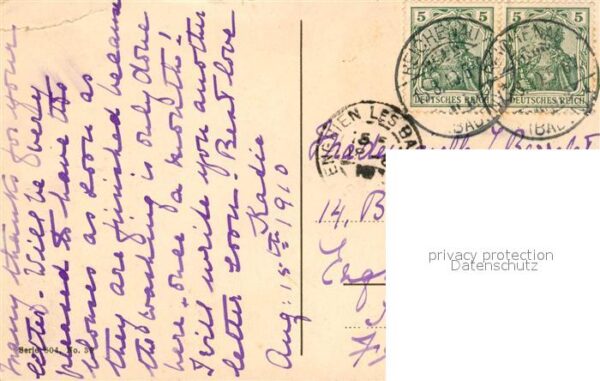 Many thanks for your
letter. Will be very
pleased to have the
blouses as soon as
they are finished because
the washing is only done
here once a month!
I will write you another
letter soon! Best love
Kadie
Aug: 15th 1910
Serie 504, No. 39
5 5
DEUTSCHES REICH
5 5
DEUTSCHES REICH
REICHENHALL
BAD
ENGHIEN LES BAINS
14, B
privacy protection
Datenschutz